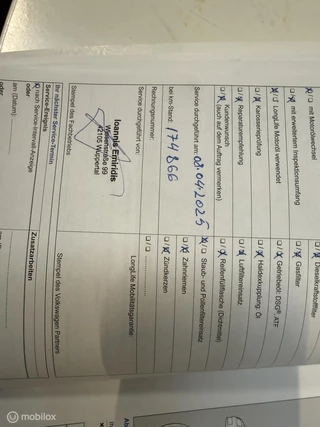 mit Motorölwechsel
mit erweitertem Inspektionsumfang
LongLife Motoröl verwendet
Karosserieprüfung
Reparaturempfehlung
Kundenwunsch
(auch auf dem Auftrag vermerken)
Service durchgeführt am: 08.04.2025
bei km-Stand: 174866
Rechnungsnummer:
Service durchgeführt von:
Ioannis Emiridis
42105 Wuppertal
Stempel des Fachbetriebs
Ihr nächster Service-Termin
Service-Ereignis
nach Service-Intervall-Anzeige
oder
am (Datum):
oder
Dieselkraftstofffilter
Gasfilter
Getriebeöl: DSG®, ATF
Haldexkupplung: Öl
Luftfiltereinsatz
Reifenfüllflasche (Dichtmittel)
Staub- und Pollenfiltereinsatz
Zahnriemen
Zündkerzen
LongLife Mobilitätsgarantie
Stempel des Volkswagen Partners
Zusatzarbeiten
mobilox